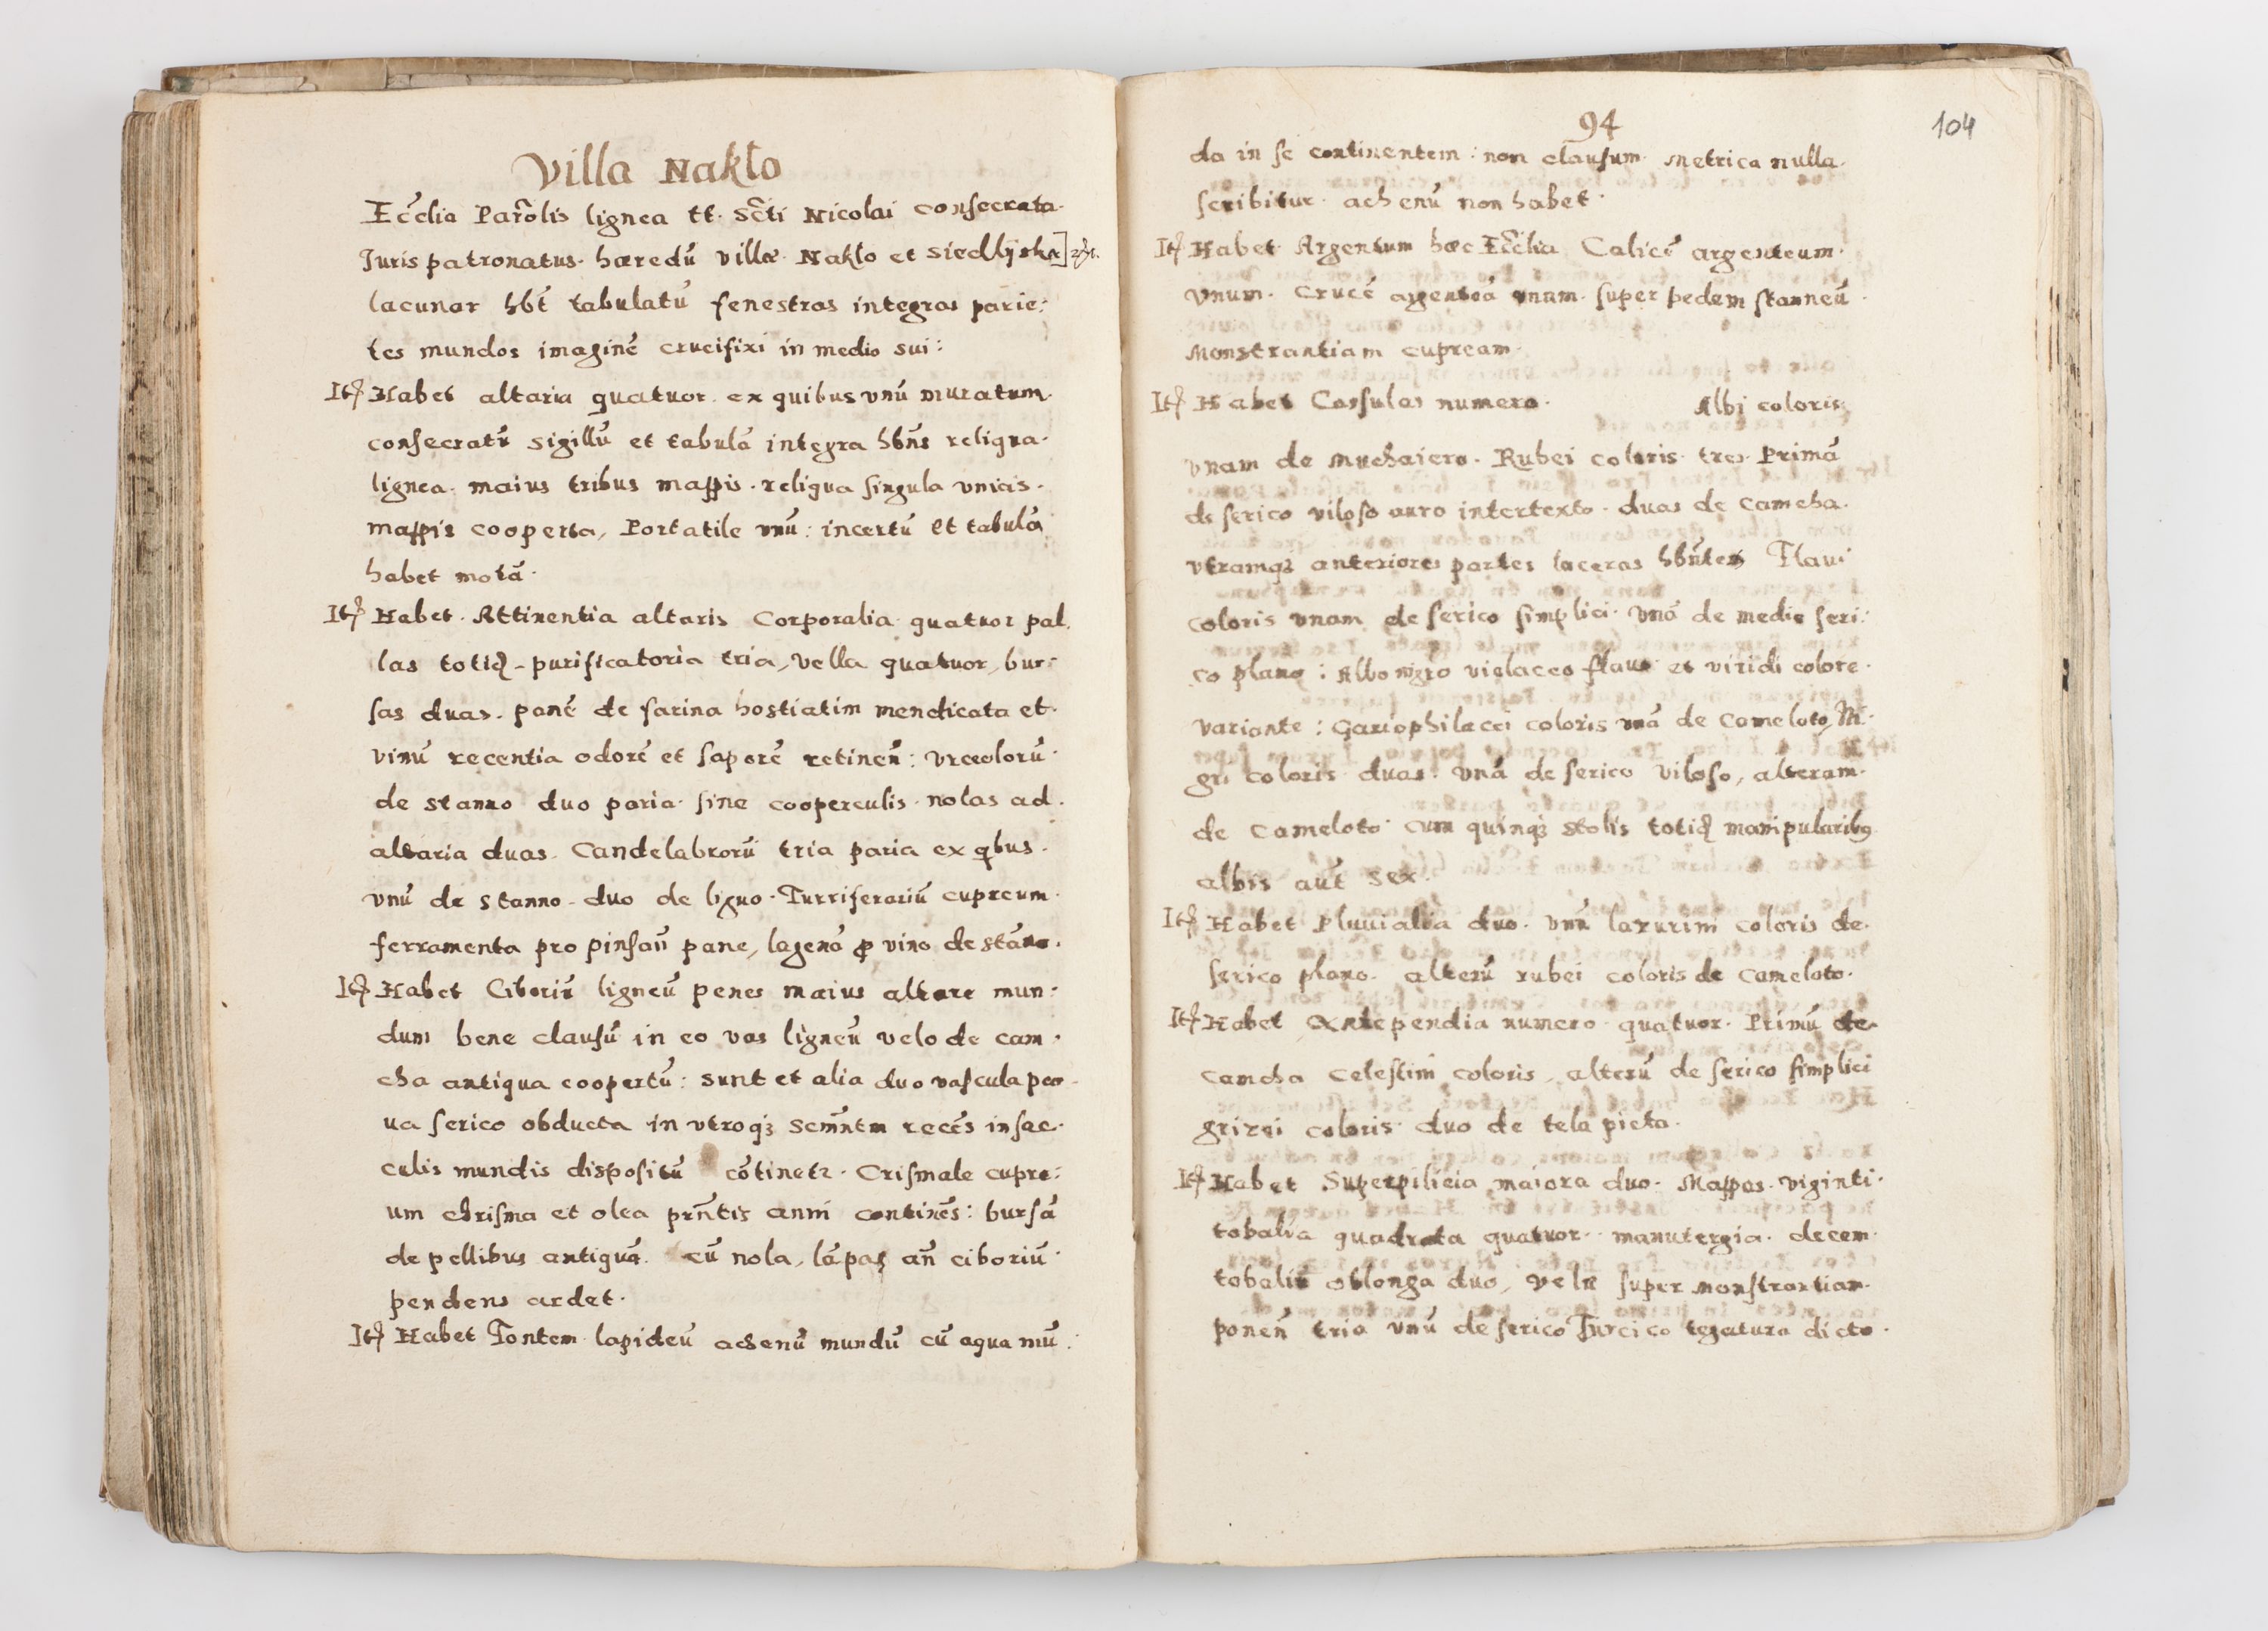 Villa Nakło
Eccłia Parołis lignea tt. Scti Nicolai consecrata.
Juris patronatus. hæredū villæ. Nakło et Siedllÿska]
lacunar hbt̄ tabulatū fenestras integras parie:
tes mundos imaginē crucifixi in medio sui:
Itē Habet altaria quatuor. ex quibus vnū muratum.
consecratū sigillū et tabulā integra hbn̄s reliqua.
lignea. maius tribus mappis. reliqua singula vnicis.
mappis cooperta, Portatile vnū: incertū et tabulā
habet motā.
Itē Habet. Attinentia altaris Corporalia quatuor pal.
las totiđ purificatoria tria, vella quatuor, bur:
sas duas. panē de farina hostiatim mendicata et.
vinū recentia odorē et saporē retinen̄: vrceolorū.
de stanno duo paria. sine cooperculis. nolas ad.
altaria duas. Candelabrorū tria paria ex qbus.
vnū de stanno. duo de ligno. Turriferariū cupreum.
ferramenta pro pinsan̄ pane, lagenā ꝓ vino de stāno.
Itē Habet Ciboriū ligneū penes maius altare mun:
dum bene clausū in eo vas ligneū velo de cam.
cha antiqua coopertū: sunt et alia duo vascula par
ua serico obducta in vtroqȝ Scm̄ntm recēs in sac.
culis mundis dispositū cōtinetr. Crismale cupre:
um chrisma et olea prn̄tis anni continēs: bursā
de pellibus antiquā. cū nola, lāpas an̄ ciboriū.
pendens ardet.
Itē Habet Fontem lapideū achenū mundū cū aqua mū:
94
104
da in se continentem: non clausum. Metrica nulla.
scribitur. achenū non habet.
Itē Habet Argentum hæc Eccłia Calicē argenteum.
vnum. Crucē argenteā vnam. super pedem stanneū.
Monstrantiam cupream.
Itē Habet Casulas numero. Albi coloris
vnam de muchaiero. Rubei coloris. tres. Primā
de serico viloso auro intertexto. duas de Camcha.
vtramqȝ anteriores partes laceras hbn̄tes Flaui
coloris vnam de serico simplici. vnā de medio seri:
co plano: Albo nigro violaceo flauo et viridi colore.
variante: Gariophilacei coloris vnā de Cameloto, Ni.
gri coloris duas. vnā de serico viloso, alteram.
de Cameloto. cum quinqȝ stolis totiđ manipularibꝰ
albis aūt sex.
Itē Habet Pluuialia duo. vnū lazurini coloris de.
serico plano. alterū rubei coloris de Cameloto.
Itē Habet Antependia numero quatuor. Primū de.
camcha Celestini coloris, alterū de serico simplici
grizei coloris. duo de tela picta.
Itē Habet Superpilicia maiora duo. Mappas. viginti.
tobalia quadrata quatuor. manutergia. decem.
tobalia oblonga duo, vela super monstrantiam.
ponen̄ tria vnū de serico Turcico tegatura dicto.